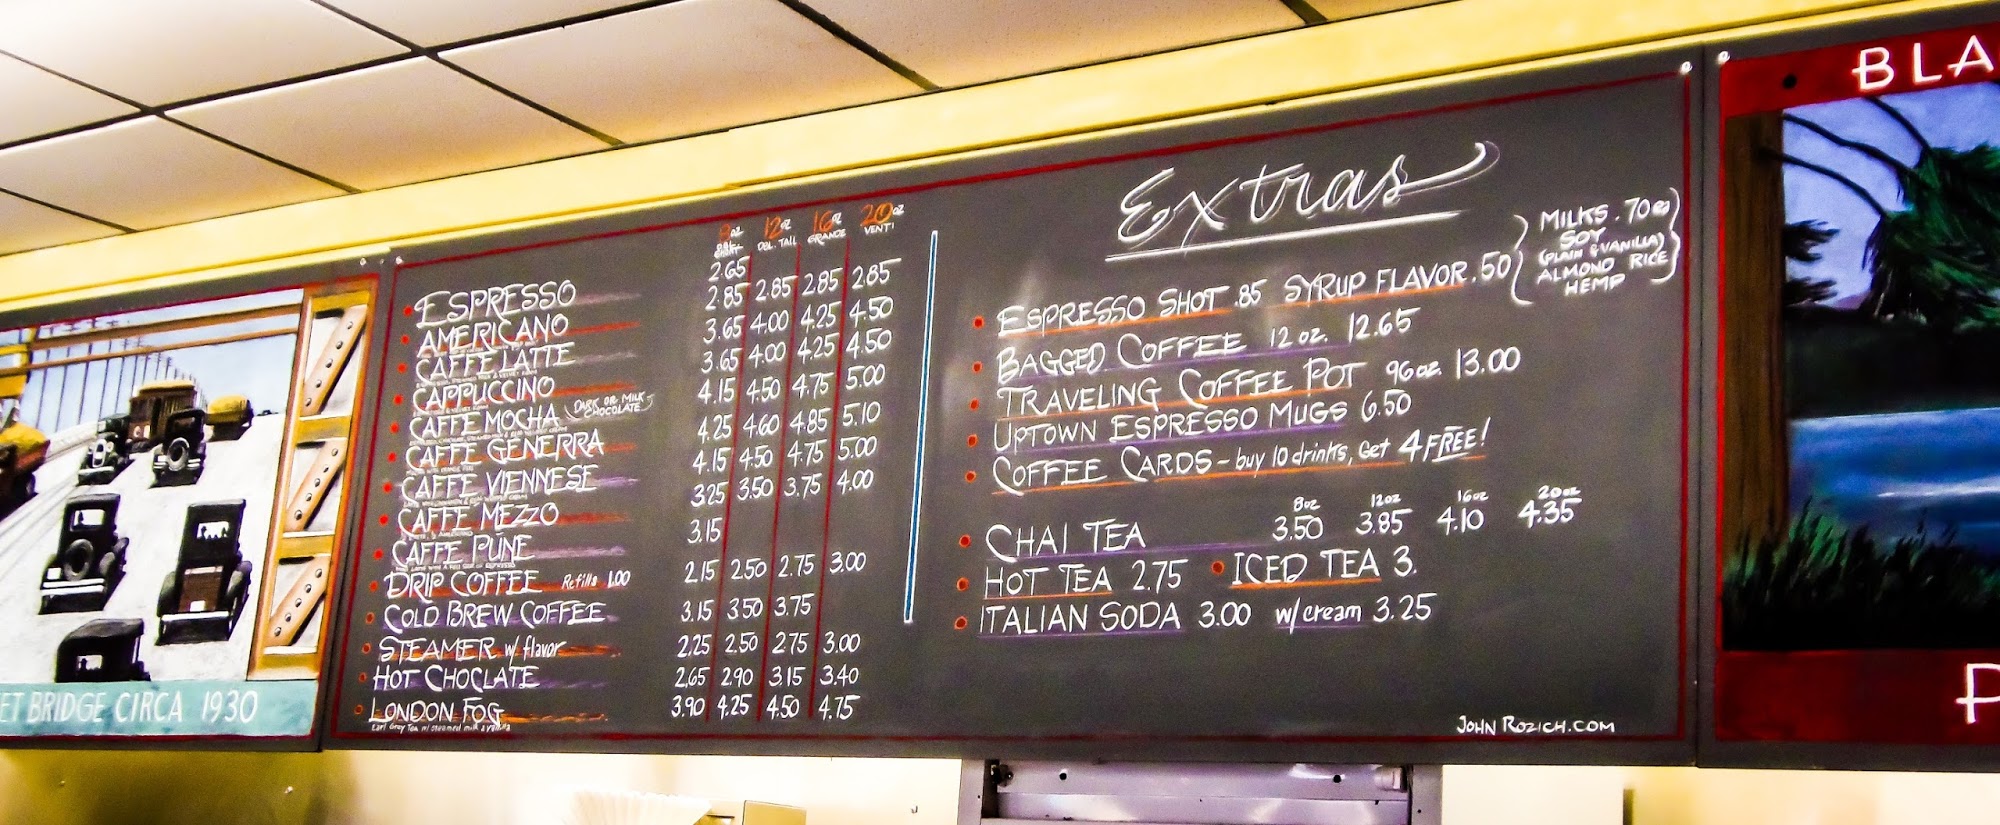 8oz 12oz 16oz 20oz
DBL. TALL GRANDE VENTI
ESPRESSO 2.65
AMERICANO 2.85 2.85 2.85 2.85
CAFFE LATTE 3.65 4.00 4.25 4.50
CAPPUCCINO 3.65 4.00 4.25 4.50
CAFFE MOCHA (DARK OR MILK CHOCOLATE) 4.15 4.50 4.75 5.00
CAFFE GENERRA 4.25 4.60 4.85 5.10
CAFFE VIENNESE 4.15 4.50 4.75 5.00
CAFFE MEZZO 3.25 3.50 3.75 4.00
CAFFE PUNE 3.15
DRIP COFFEE Refills 1.00 2.15 2.50 2.75 3.00
COLD BREW COFFEE 3.15 3.50 3.75
STEAMER w/ flavor 2.25 2.50 2.75 3.00
HOT CHOCLATE 2.65 2.90 3.15 3.40
LONDON FOG 3.90 4.25 4.50 4.75
Earl Grey Tea w/ steamed milk & vanilla
Extras
ESPRESSO SHOT .85 SYRUP FLAVOR .50
MILKS .70 ea
SOY
(PLAIN & VANILLA)
ALMOND RICE
HEMP
BAGGED COFFEE 12 oz. 12.65
TRAVELING COFFEE POT 96oz 13.00
UPTOWN ESPRESSO MUGS 6.50
COFFEE CARDS - buy 10 drinks, Get 4 FREE!
8oz 12oz 16oz 20oz
CHAI TEA 3.50 3.85 4.10 4.35
HOT TEA 2.75 ICED TEA 3.
ITALIAN SODA 3.00 w/cream 3.25
JOHN ROZICH.COM
ET BRIDGE CIRCA 1930
BLA
P